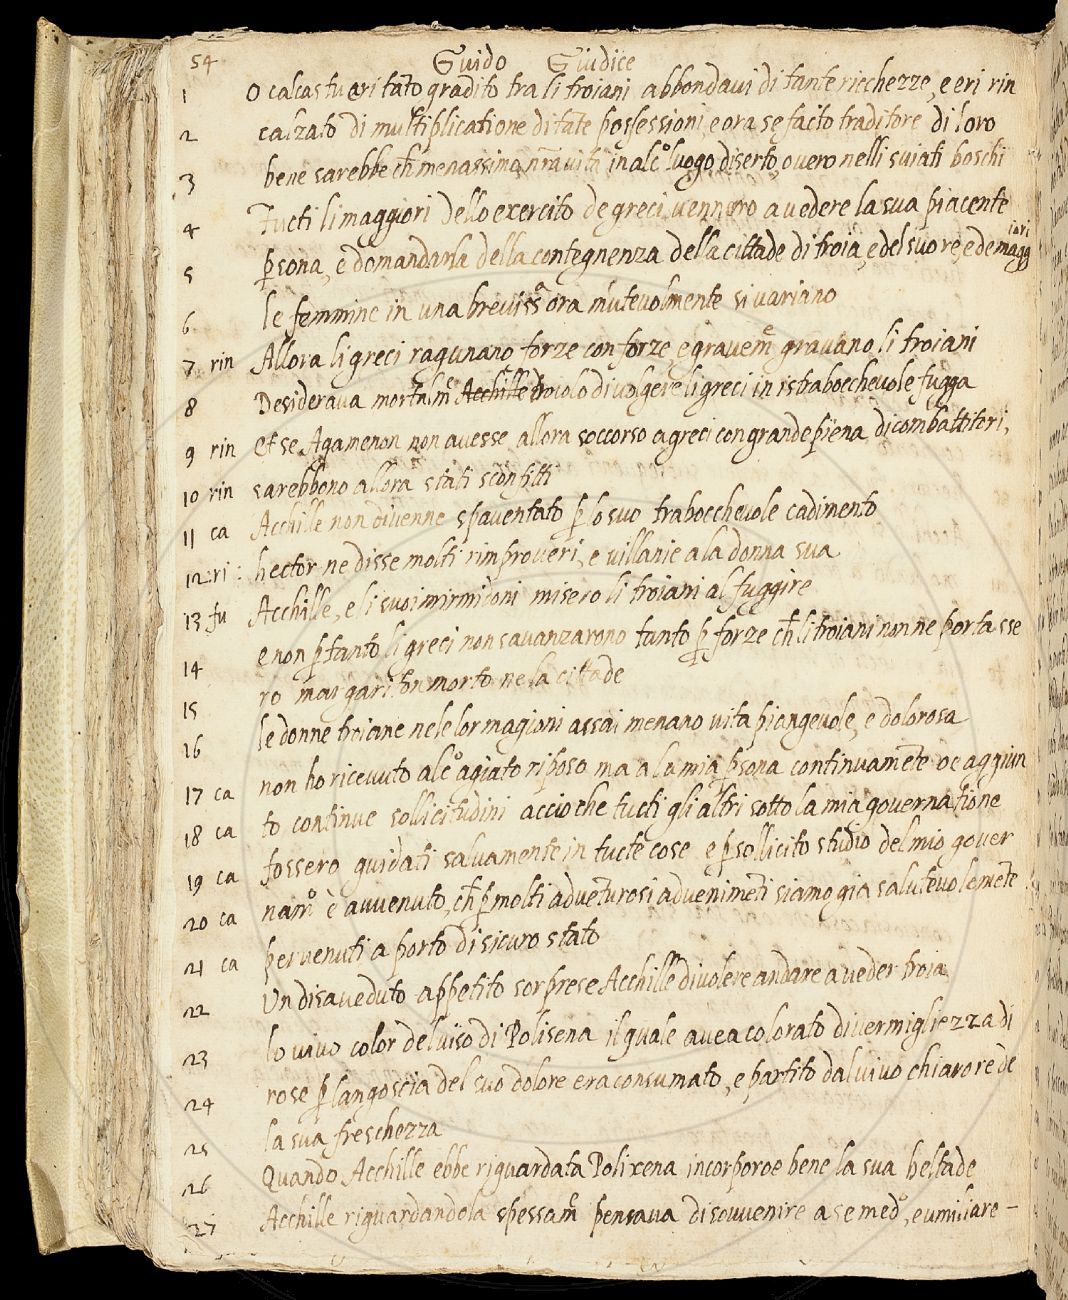 54
Guido Giudice
1 O calcas tu eri tāto gradito tra li troiani abbondaui di tante ricchezze, e eri rin
2 calzato di multiplicatione di tāte possessioni, e ora se facto traditore di loro
3 bene sarebbe ch̄ menassimo nr̄a uita in alcº luogo diserto, ouero nelli suiati boschi
4 Tucti li maggiori dello exercito de greci uennero a uedere la sua piacente
5 ꝑsona, e domandarla della contegnenza della cittade di troia, e del suo re, e de magg
iori
6 le femmine in una breuissª ora mutevolmente si uariano
7 rin Allora li greci ragunano forze con forze e grauemᵉ grauano li troiani
8 Desideraua mortalmᵉ Acchille troiolo di uolgere li greci in istrabocchevole fugga
9 rin et se Agamenon non auesse allora soccorso a greci con grande piena di combattitori,
10 rin sarebbono allora stati sconfitti
11 ca Acchille non diuenne spaventato ꝑ lo suo trabocchevole cadimento
12 ri: hector ne disse molti rimproueri, e villanie a la donna sua
13 fu Acchille, e li suoi mirmidoni misero li troiani al fuggire
14 e non ꝑ tanto li greci non s avanzarono tanto ꝑ forze ch̄ li troiani non ne portasse
15 ro margariton morto ne la cittade
16 le donne troiane nele lor magioni assai menano uita piangevole, e dolorosa
17 ca non ho ricevuto alcº agiato riposo ma a la mia ꝑsona continuamēte oe aggiun
18 ca to continue sollicitudini accio che tucti gli altri sotto la mia governatione
19 ca fossero guidati salvamente in tucte cose e ꝑ sollicito studio del mio gover
20 ca namº è avvenuto, ch̄ ꝑ molti adveturosi advenimēti siamo gia salutevolemēte
21 ca pervenuti a porto di sicuro stato
22 Un disaveduto appetito sorprese Acchille di volere andare a veder troia
23 lo vivo color del uiso di Polisena il quale avea colorato di vermigliezza di
24 rose ꝑ l angoscia del suo dolore era consumato, e partito dal vivo chiarore de
25 la sua freschezza
26 Quando Acchille ebbe riguardata Polixena incorporoe bene la sua beltade
27 Acchille riguardandola spessam̄ pensaua di sovvenire a se medº, e umiliare –